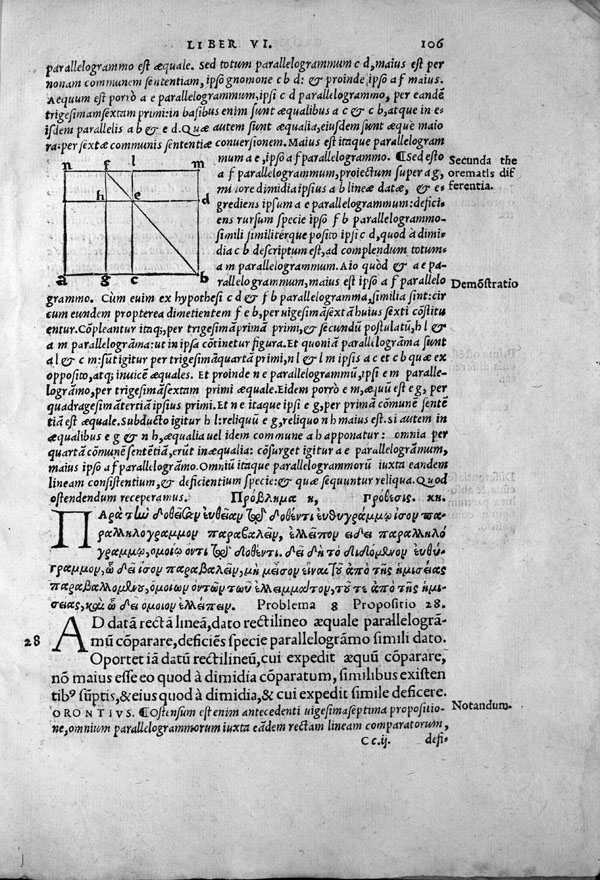 LIBER VI. 106
parallelogrammo est æquale. Sed totum parallelogrammum c d, maius est per
nonam communem sententiam, ipso gnomone c b d: & proinde, ipso a f maius.
Aequum est porrò a e parallelogrammum, ipsi c d parallelogrammo, per eandẽ
trigesimamsextam primi: in basibus enim sunt æqualibus a c & c b, atque in e-
isdem parallelis a b & e d. Quæ autem sunt æqualia, eiusdem sunt æque maio
ra: per sextã communis sententiæ conuersionem. Maius est itaque parallelogra
mum a e, ipso a f parallelogrammo. ¶Sed esto
a f parallelogrammum, proiectum super a g,
minore dimidia ipsius a b lineæ datæ, & e-
grediens ipsum a e parallelogrammum: defici-
ens rursum specie ipso f b parallelogrammo
simili similitérque posito ipsi c d, quod à dimi-
dia c b descriptum est, ad complendum totum
a m parallelogrammum. Aio quòd & a e pa-
rallelogrammum, maius est ipso a f parallelo
Secunda the
orematis dif
ferentia.
Demõstratio
n f l m
h e d
a g c b
grammo. Cùm enim ex hypothesi c d & f b parallelogramma, similia sint: cir
cum eundem propterea dimetientem f e b, per uigesimãsextã huius sexti cõstitu
entur. Cõpleantur itaq;, per trigesimãprimã primi, & secundũ postulatũ, h l &
a m parallelogrãma: ut in ipsa cõtinetur figura. Et quoniã parallelogrãma sunt
a l & c m: sũt igitur per trigesimãquartã primi, n l & l m ipsis a c et c b quæ ex
opposito, atq; inuicẽ æquales. Et proinde n e parallelogrammũ, ipsi e m paralle-
logrãmo, per trigesimãsextam primi æquale. Eidem porrò e m, æquũ est e g, per
quadragesimãtertiã ipsius primi. Et n e itaque ipsi e g, per primã cõmunẽ sentẽ
tiã est æquale. Subducto igitur h l: reliquũ e g, reliquo n h maius est. Si autem in
æqualibus e g & n h, æqualia uel idem commune a h apponatur: omnia per
quartã cõmunẽ sentẽtiã, erũt inæqualia: cõsurget igitur a e parallelogrãmum,
maius ipso a f parallelogrãmo. Omniũ itaque parallelogrammorũ iuxta eandem
lineam consistentium, & deficientium specie: & quæ sequuntur reliqua. Quod
ostendendum receperamus. Πρόβλημα η, Πρόθεσις. κη.
ΠΑρὰ τὴν δοθεῖσαν εὐθεῖαν τῷ δοθέντι εὐθυγράμμῳ ἴσον πα-
ραλληλόγραμμον παραβαλεῖν, ἐλλεῖπον εἴδει παραλληλο
γράμμῳ, ὁμοίῳ ὄντι τῷ δοθέντι. δεῖ δὴ τὸ διδόμενον εὐθύ-
γραμμον, ᾧ δεῖ ἴσον παραβαλεῖν, μὴ μεῖζον εἶναι τοῦ ἀπὸ τῆς ἡμισείας
παραβαλλομένου, ὁμοίων ὄντων τῶν ἐλλειμμάτων, τοῦ τε ἀπὸ τῆς ἡμι-
σείας, καὶ ᾧ δεῖ ὅμοιον ἐλλείπειν. Problema 8 Propositio 28.
28 AD datã rectã lineã, dato rectilineo æquale parallelogrã-
mũ cõparare, deficiẽs specie parallelogrãmo simili dato.
Oportet iã datũ rectilineũ, cui expedit æquũ cõparare,
nõ maius esse eo quod à dimidia cõparatum, similibus existen
tibꝰ sũptis, & eius quod à dimidia, & cui expedit simile deficere.
ORONTIVS. ¶Ostensum est enim antecedenti uigesimaseptima propositio-
ne, omnium parallelogrammorum iuxta eãdem rectam lineam comparatorum,
Notandum.
Cc.ij. defi-